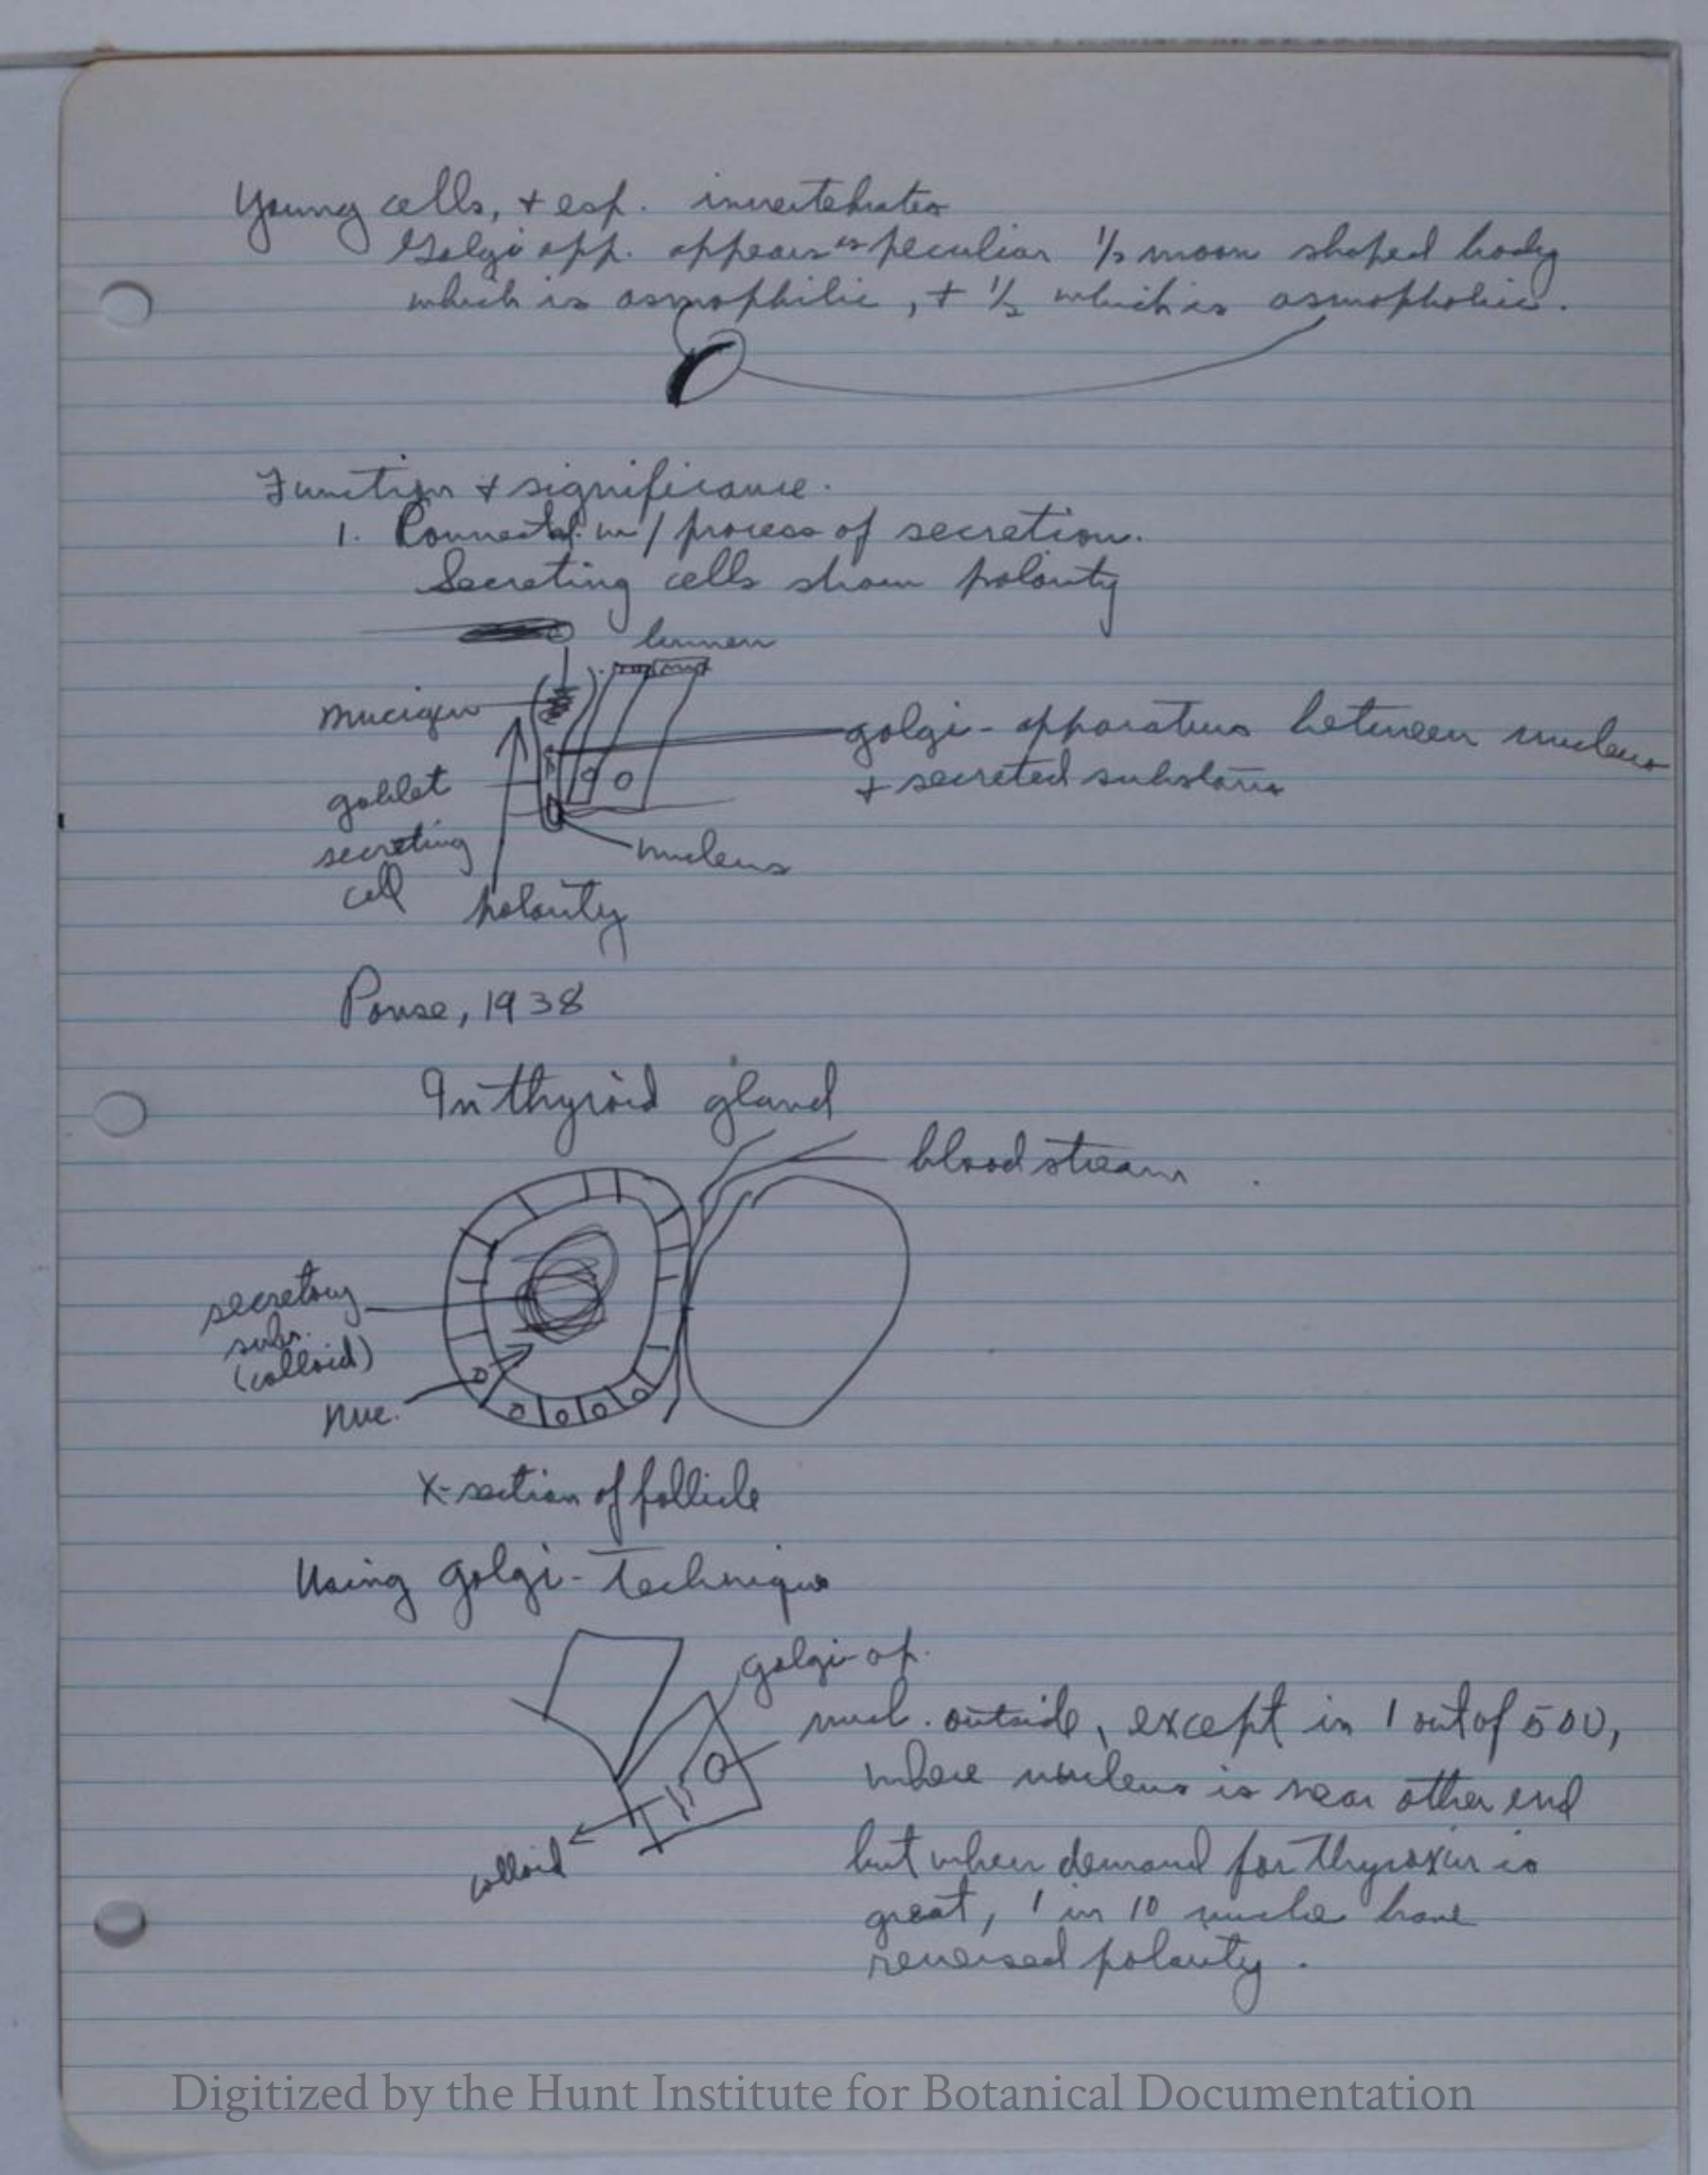 Young cells, + esp. invertebrates
Golgi app. appears as peculiar 1/2 moon shaped body
which is osmophilic, + 1/2 which is osmophobic.
Function + significance.
1. Connected w/ process of secretion.
Secreting cells show polarity
lumen
mucigen
golgi-apparatus between nucleus
+ secreted substance
goblet
secreting
cell
nucleus
polarity
Ponse, 1938
In thyroid gland
blood stream
secretory
subs.
(colloid)
nuc.
X-section of follicle
Using golgi-technique
golgi-ap.
nucl. outside, except in 1 out of 500,
where nucleus is near other end
colloid
but when demand for thyroxin is
great, 1 in 10 nuclei have
reversed polarity.
Digitized by the Hunt Institute for Botanical Documentation